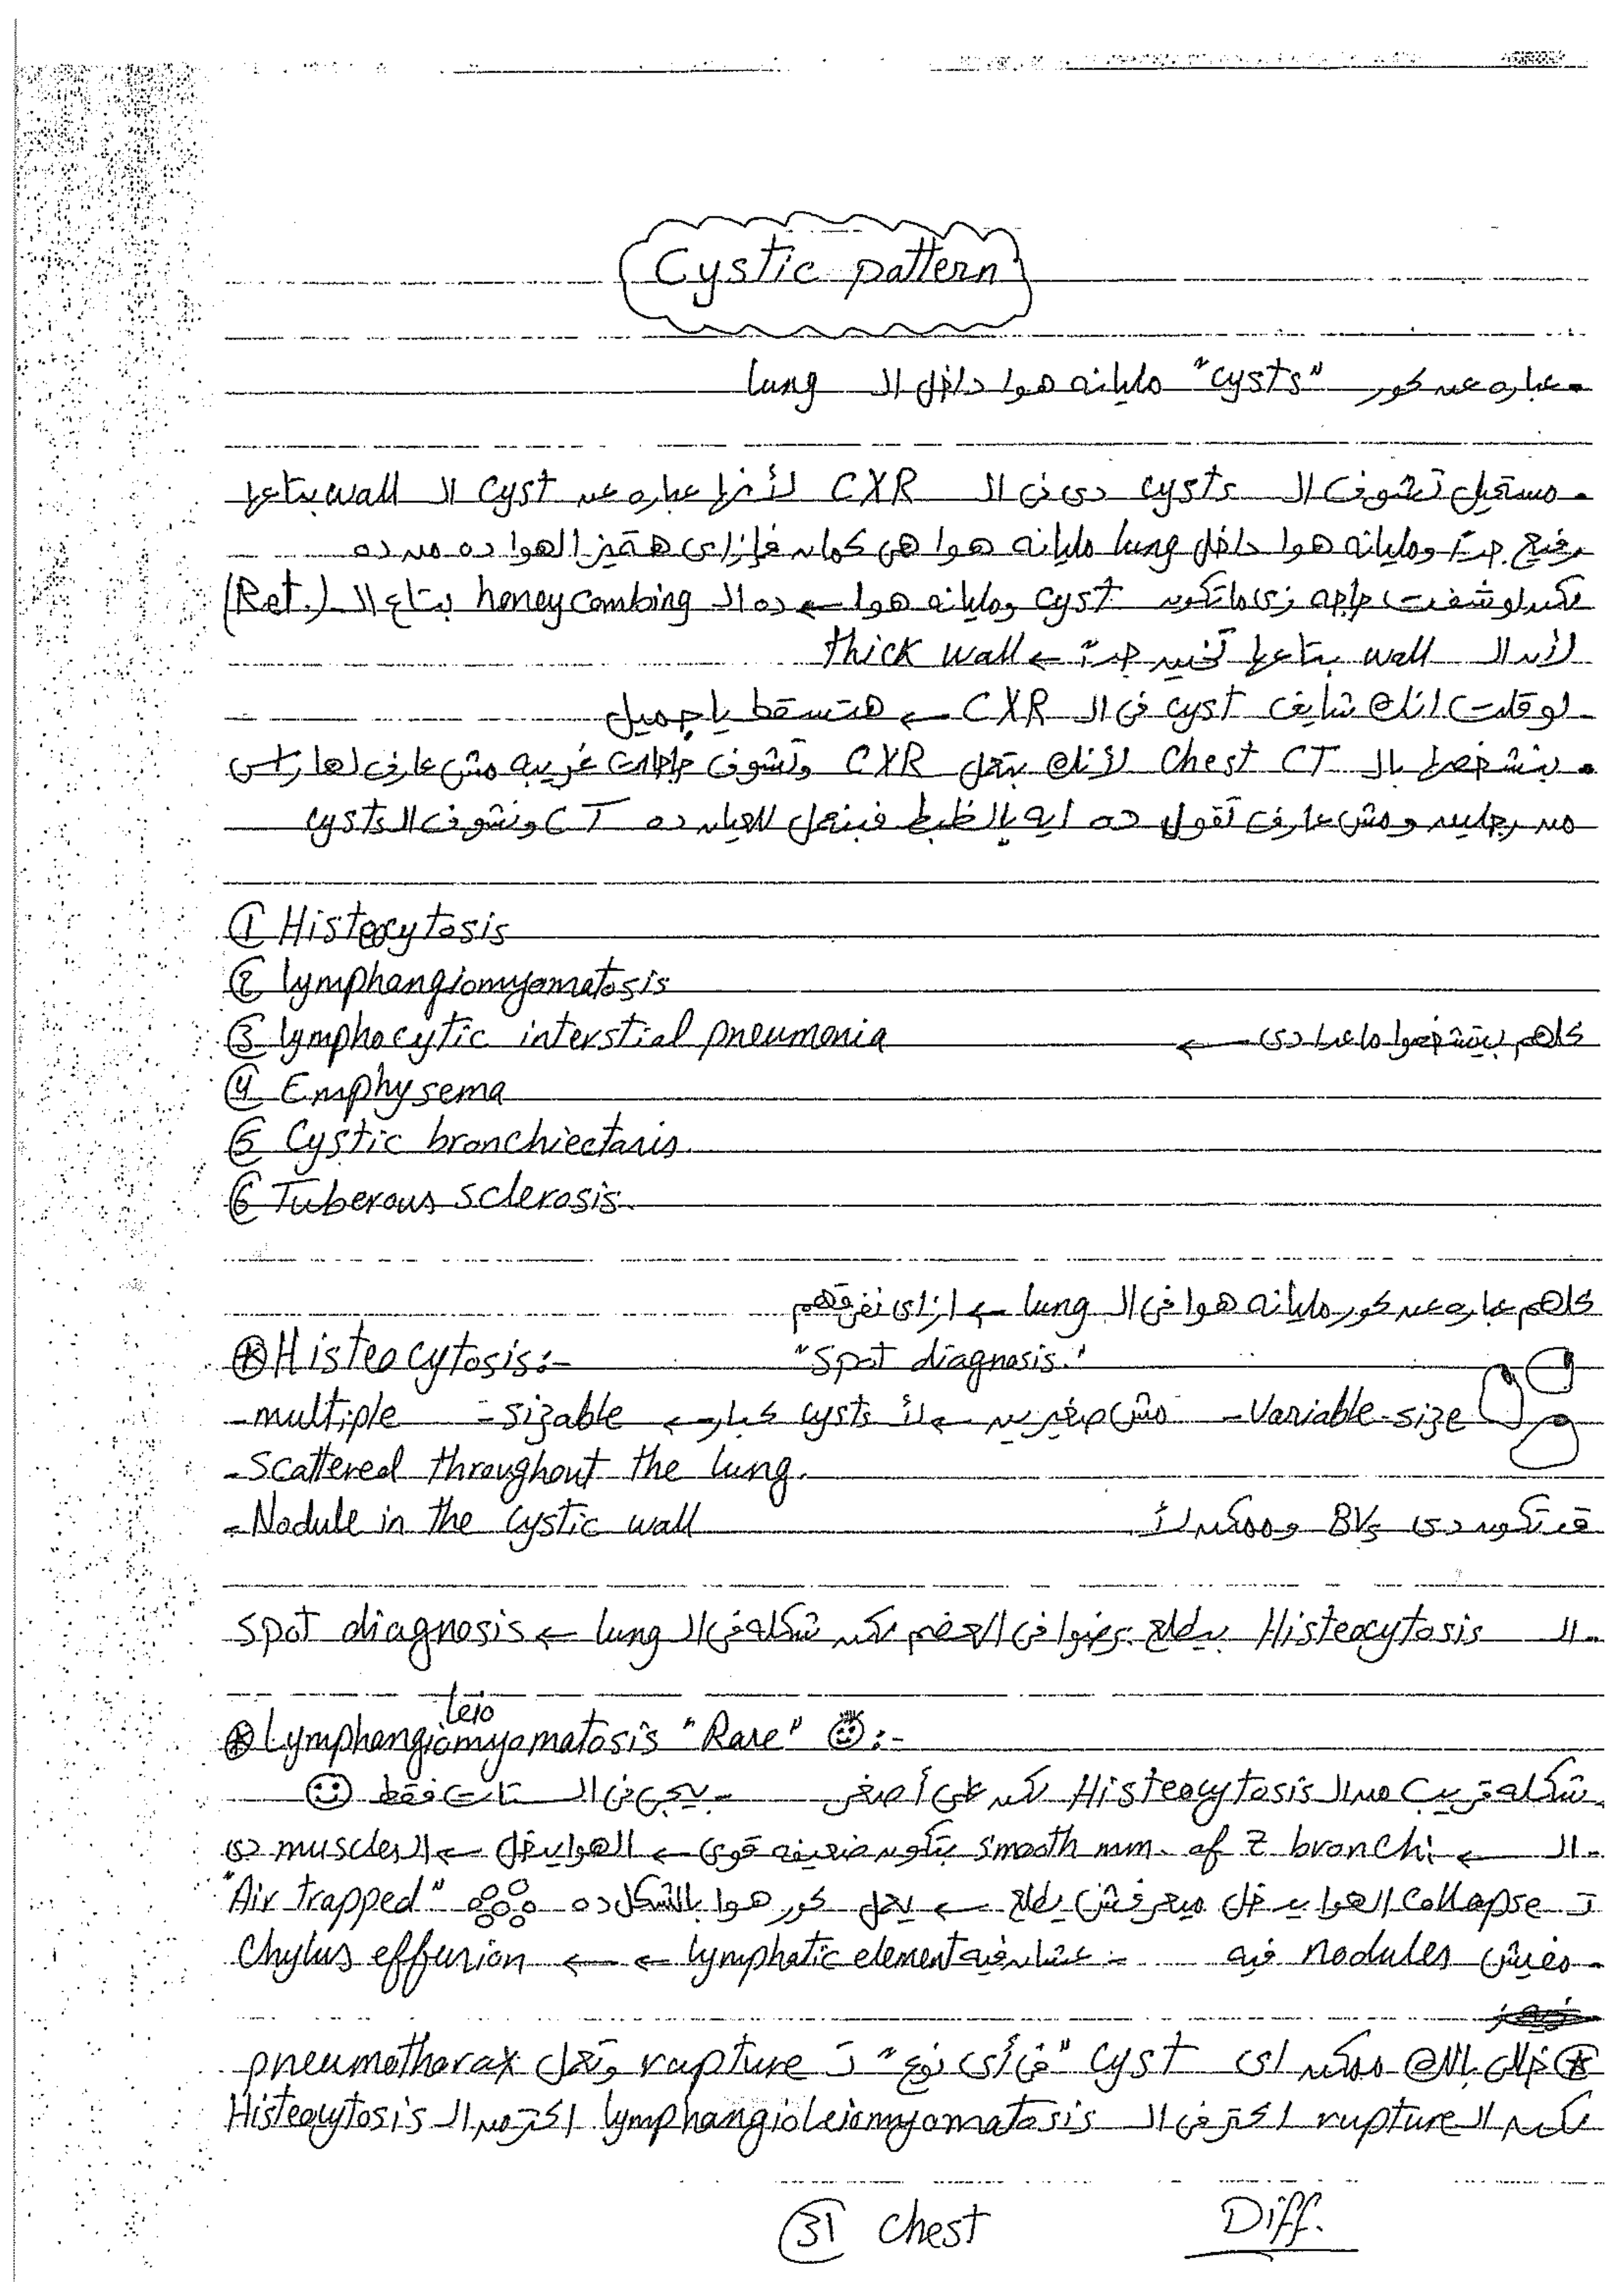 Cystic pattern
- عباره عن كور "cysts" مليانه هوا داخل الـ lung
- مستحيل تشوف الـ cysts دى فى الـ CXR لأنها عباره عن cyst الـ wall بتاعها
رفيع جدًا ومليانه هوا داخل lung مليانه هوا هى كمان فإزاى هتميز الهوا ده من ده
لكن لو شفت حاجه زى ماتكون cyst ومليانه هوا ← ده الـ honey combing بتاع الـ (Ret.)
لأن الـ wall بتاعها تخين جدًا ← thick wall
- لو قلت انك شايف cyst فى الـ CXR ← هتسقط ياجميل
• بنشخصها بالـ Chest CT لأنك بتعمل CXR وتشوف حاجات غريبه مش عارف لها راس
من رجلين ومش عارف تقول ده ايه بالظبط فبنعمل للعيان ده CT ونشوف الـ cysts
① Histeocytosis
② lymphangiomyomatosis
③ lymphocytic interstial pneumonia كلهم بيتشخصوا ماعدا دى ←
④ Emphysema
⑤ Cystic bronchiectasis
⑥ Tuberous sclerosis
كلهم عباره عن كور مليانه هوا فى الـ lung ← ازاى نفرقهم
⊛ Histeocytosis:- "Spot diagnosis."
- multiple - sizable ← cysts كبار ← لأ مش صغيرين - Variable-size
- Scattered throughout the lung.
- Nodule in the cystic wall قد تكون دى BVs وممكن لأ
- الـ Histeocytosis بيطلع برضوا فى العضم لكن شكله فى الـ lung ← spot diagnosis
leio
⊛ Lymphangiomyomatosis "Rare" ☺:-
- شكله قريب من الـ Histeocytosis لكن على أصغر - بيجى فى الستات فقط ☺
- الـ ← smooth mm. of z bronchi بتكون ضعيفه قوى ← الهوا يدخل ← الـ muscles دى
تـ collapse الهوا يدخل ميعرفش يطلع ← يعمل كور هوا بالشكل ده "Air trapped"
- مفيش nodules فيه - عشان فيه lymphatic element ← ← Chylus effusion
⊛ خلى بالك ممكن اى cyst "فى أى نوع" تـ rupture وتعمل pneumothorax
لكن الـ rupture اكتر فى الـ lymphangioleiomyomatosis اكتر من الـ Histeocytosis
31 Chest Diff.